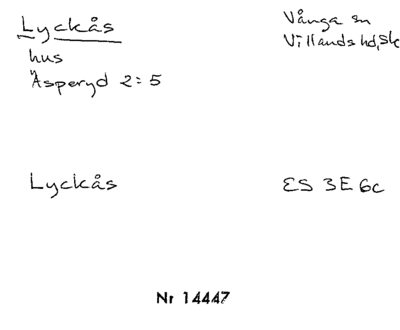 Lyckås
Vånga sn
Villands hd, Sk
hus
Äsperyd 2:5
Lyckås
ES 3E 6c
Nr 14447